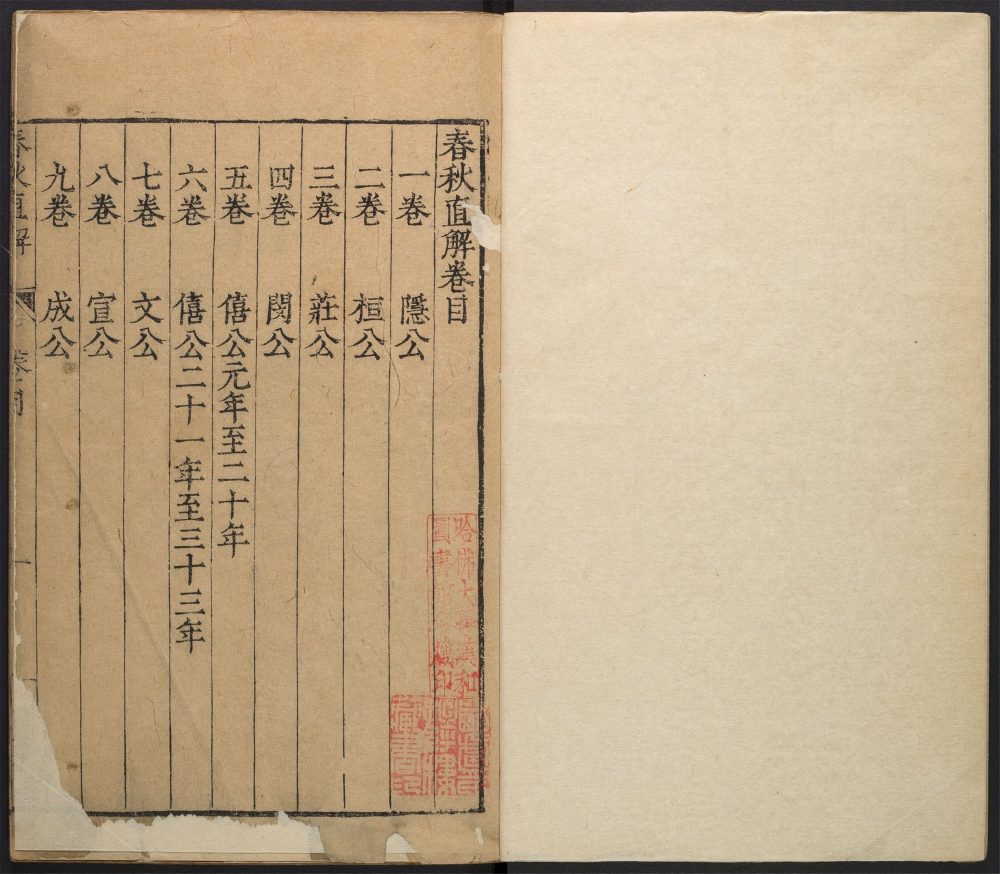 春秋直解卷目
一卷 隱公
二卷 桓公
三卷 莊公
四卷 閔公
五卷 僖公元年至二十年
六卷 僖公二十一年至三十三年
七卷 文公
八卷 宣公
九卷 成公
春秋直解 卷目 一
哈佛大學漢和
圖書館珍藏印